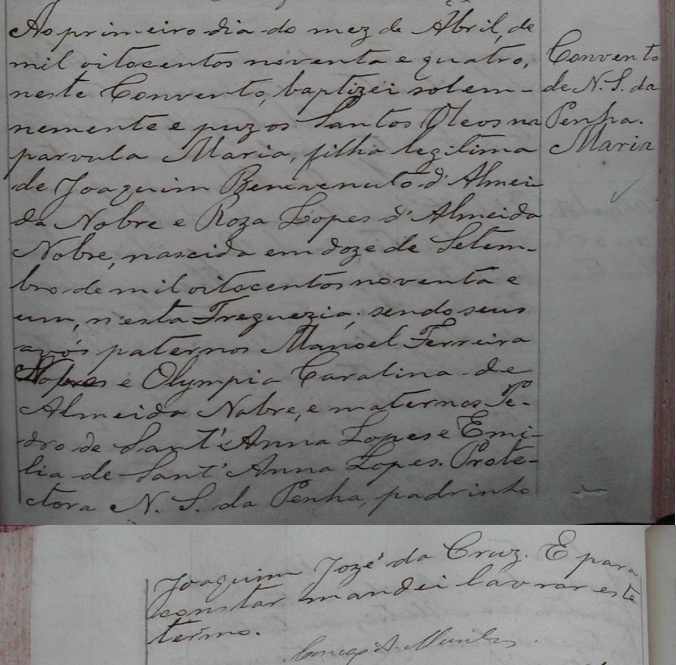 Ao primeiro dia do mez de Abril, de
mil oitocentos noventa e quatro,
neste Convento, baptizei solem-
nemente e puz os Santos Oleos na
parvula Maria, filha legitima
de Joaquim Benevenuto d'Almei
da Nobre e Roza Lopes d'Almeida
Nobre, nascida em doze de Setem-
bro de mil oitocentos noventa e
um, n'esta Freguezia; sendo seus
avós paternos Manoel Ferreira
Nobre e Olympia Carolina de
Almeida Nobre, e maternos Pe-
dro de Sant'Anna Lopes e Emi-
lia de Sant'Anna Lopes. Prote-
ctora N. S. da Penha, padrinho
Convento
de N. S. da
Penha.
Maria
Joaquim Jozé da Cruz. E para
constar mandei lavrar este
termo.